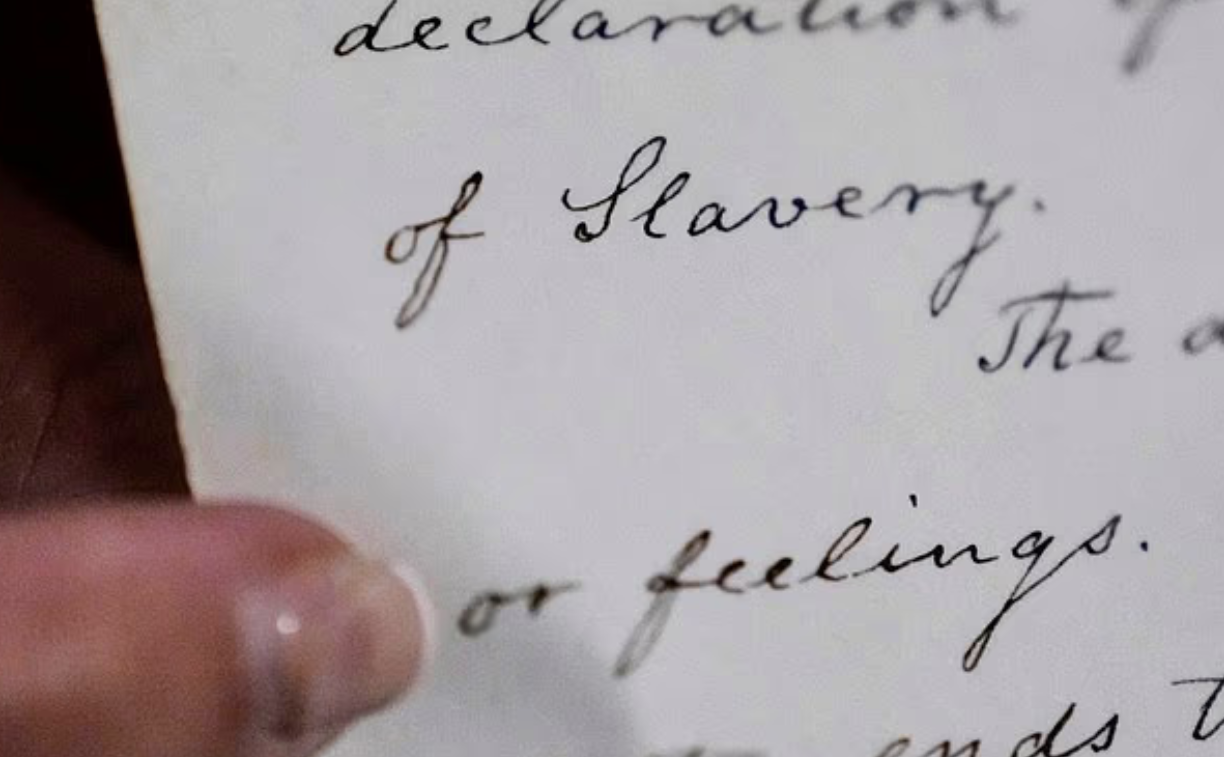 declaration of
of Slavery.
The
or feelings.
ends